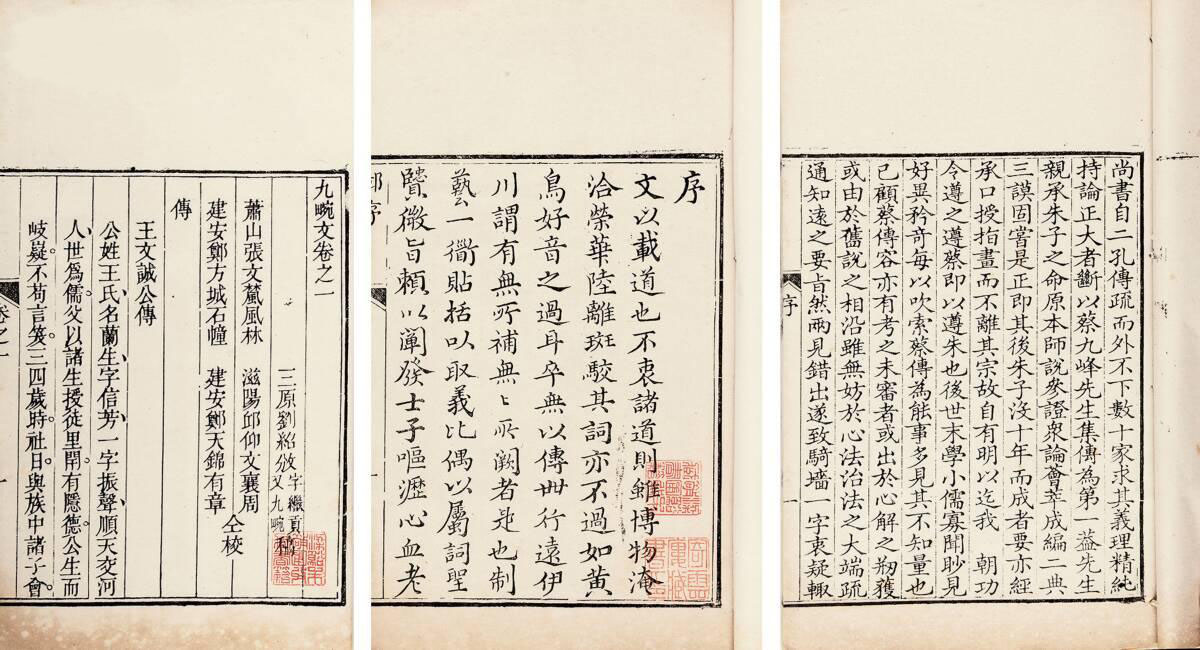 尚書自二孔傳疏而外不下數十家求其義理精純
持論正大者斷以蔡九峰先生集傳為第一葢先生
親承朱子之命原本師說參證衆論薈萃成編二典
三謨固嘗是正即其後朱子沒十年而成者要亦經
承口授指畫而不離其宗故自有明以迄我 朝功
令遵之遵蔡即以遵朱也後世末學小儒寡聞眇見
好異矜奇每以吹索蔡傳為能事多見其不知量也
已顧蔡傳容亦有考之未審者或出於心解之刱獲
或由於舊說之相沿雖無妨於心法治法之大端疏
通知遠之要旨然兩見錯出遂致騎墻一字衷疑輙
序 一
序
文以載道也不衷諸道則雖博物淹
洽榮華陸離斑駮其詞亦不過如黄
鳥好音之過耳卒無以傳世行遠伊
川謂有無所補無〻所闕者是也制
藝一衜貼括以取義比偶以屬詞聖
賢微旨頼以闡發士子嘔瀝心血老
邱序
一
九畹文卷之一
三原劉紹攽字繼貢又九畹稿
蕭山張文蘗風林 滋陽邱仰文襄周
建安鄭方城石幢 建安鄭天錦有章 仝校
傳
王文誠公傳
公姓王氏名蘭生字信芳一字振聲順天交河
人世爲儒父以諸生授徒里閈有隱德公生而
岐嶷不苟言笑三四歲時社日與族中諸子會
卷之一
一